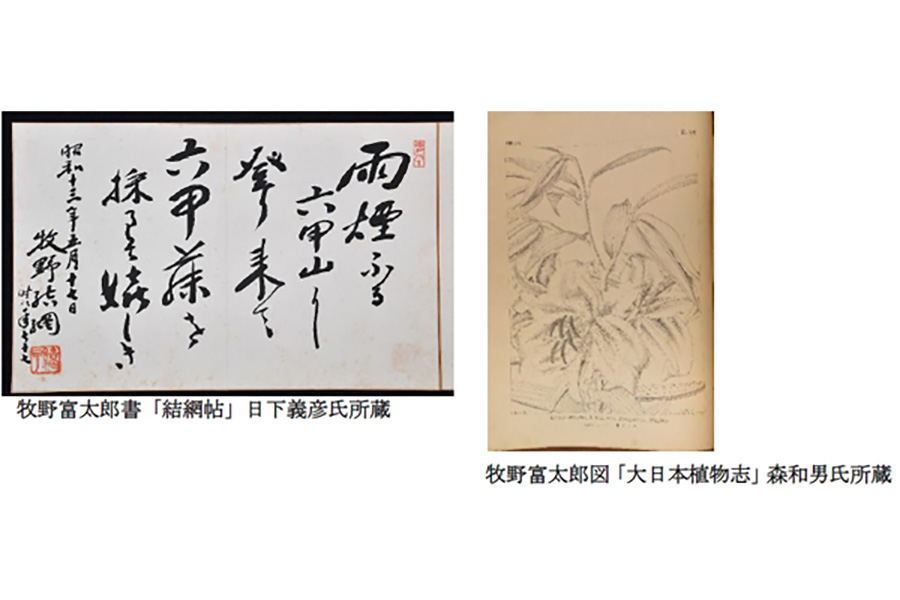 雨煙ふる
六甲山に
登り来て
六甲藤を
採るぞ嬉しき
昭和十三年五月十七日
牧野結網
時年七十七
牧野富太郎書「結網帖」日下義彦氏所蔵
牧野富太郎図「大日本植物志」森和男氏所蔵